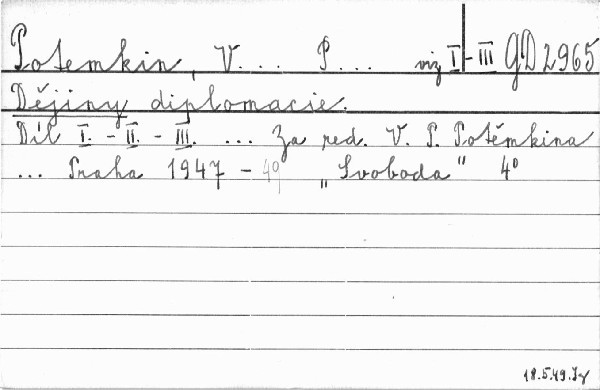 Potemkin, V... P... viz I-III GD 2965
Dějiny diplomacie.
Díl I. - II. - III. ... Za red. V. P. Potěmkina
... Praha 1947 - 49 „Svoboda" 4°
18.5.49.